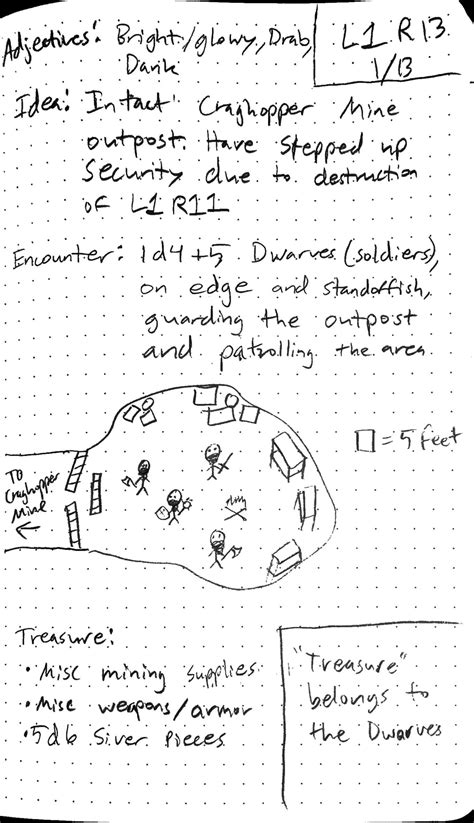 Adjectives: Bright/glowy, Drab,
Dank
L1 R13
1/13
Idea: Intact Craghopper Mine
outpost. Have stepped up
security due to destruction
of L1R11
Encounter: 1d4+5 Dwarves (soldiers),
on edge and standoffish,
guarding the outpost
and patrolling the area.
□ = 5 feet
To
Craghopper
Mine
Treasure:
• Misc mining supplies
• Misc weapons/armor
• 5d6 Silver Pieces
"Treasure"
belongs to
the Dwarves